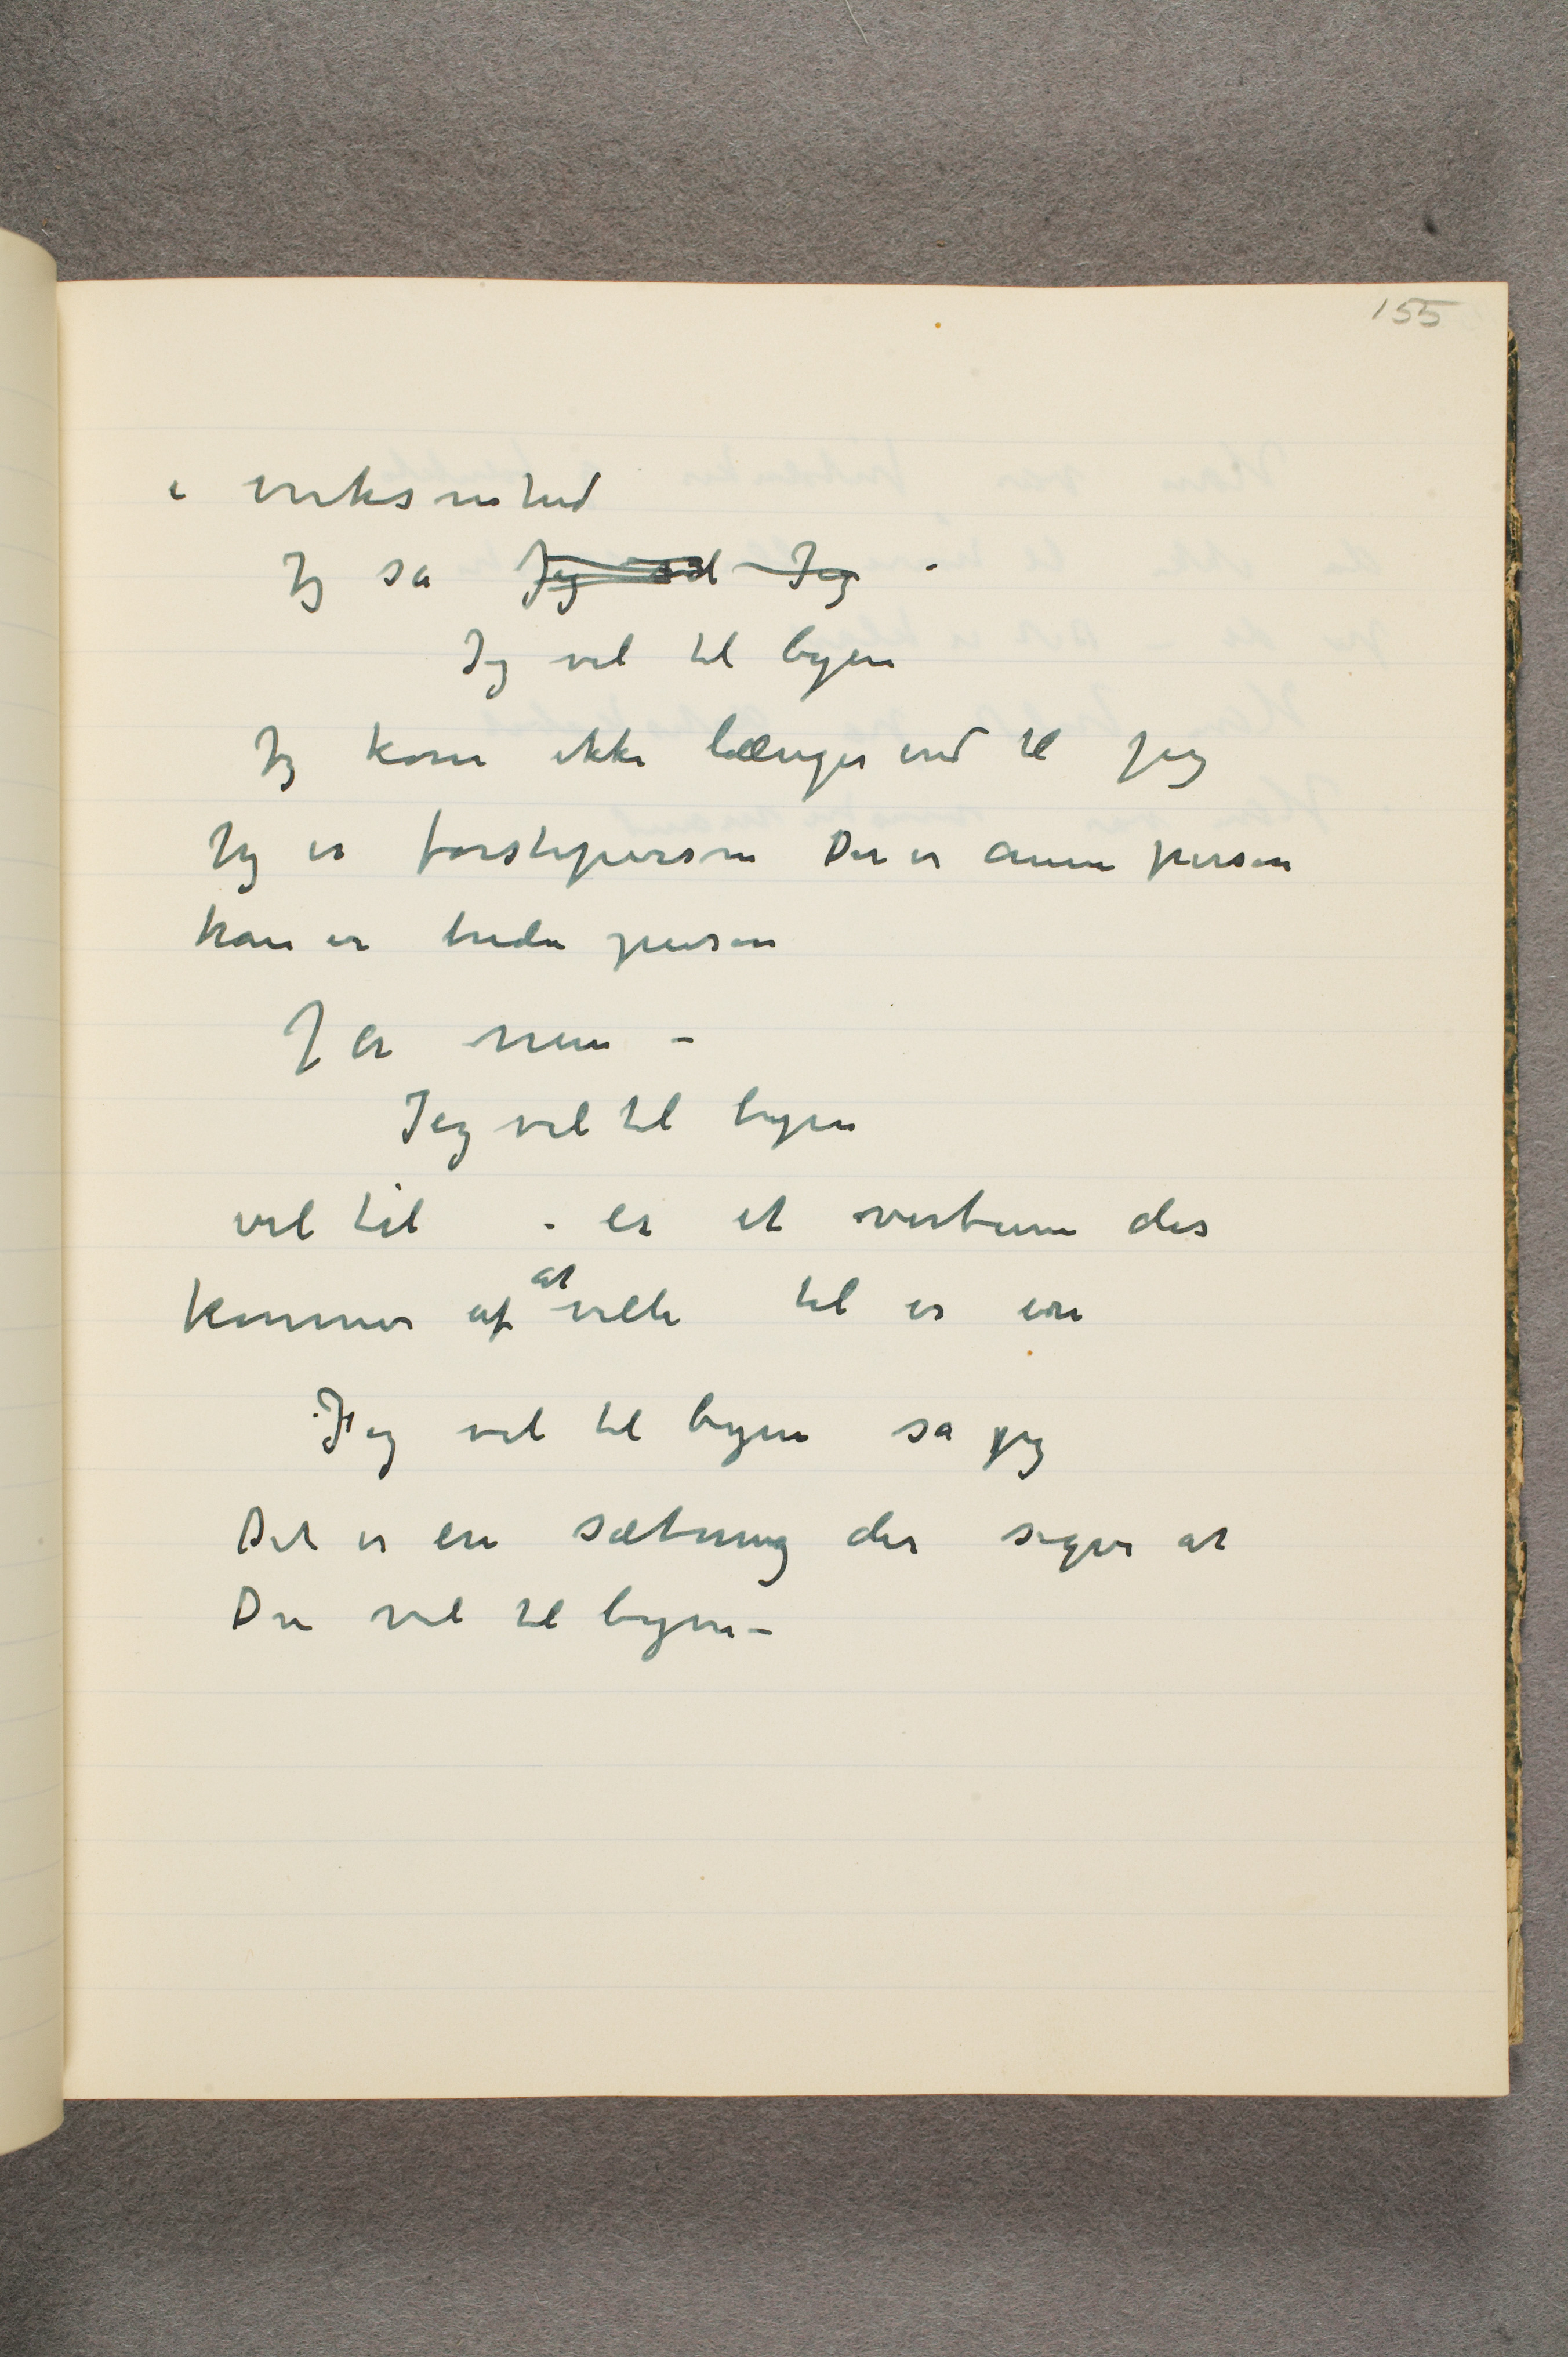 155
i virksomhed
Jeg sa Jeg vil Jeg -
Jeg vil til byen
Jeg kom ikke længer end til jeg
Jeg er førsteperson Du er annen person
han er tredie person
Ja men -
Jeg vil til byen
vil til - er et verbum der
kommer af at ville til er en
Jeg vil til byen sa jeg
Det er en sætning der siger at
Du vil til byen -